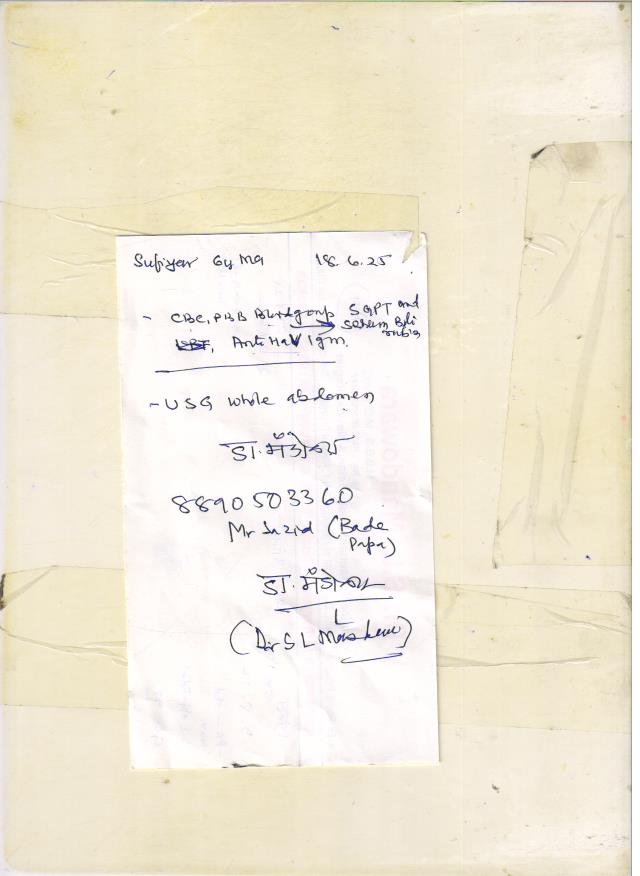 Sufiyan 6y Ma 18. 6. 25
- CBC, PBB Bloodgroup SGPT and
Serum Bili
rubin
Anti HaV Igm.
- USG whole abdomen
डा.
8890503360
Mr Sazid (Bade
Papa)
डा.
(Dr S L